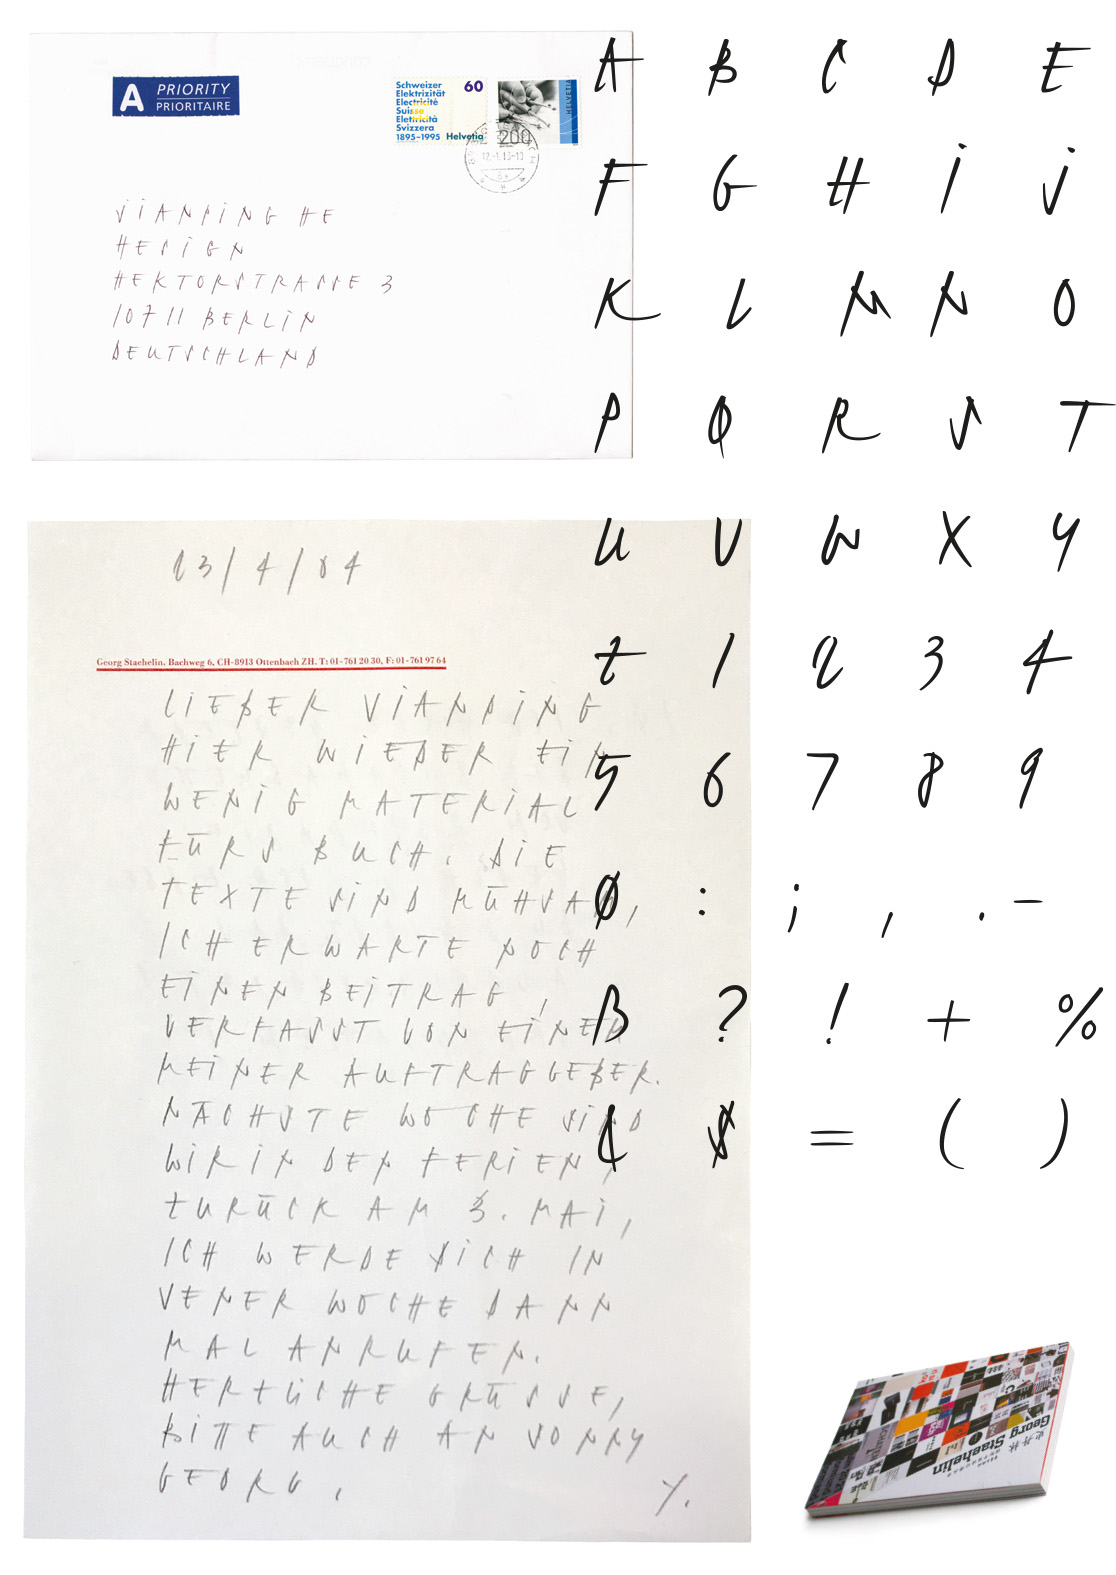 A PRIORITY
PRIORITAIRE
Schweizer
Elektrizität
Electricité
Suisse
Elettricità
Svizzera
1895-1995 Helvetia
60
HELVETIA
200
JIANPING HE
HESIGN
HEKTORSTRASSE 3
10711 BERLIN
DEUTSCHLAND
A B C D E
F G H I J
K L M N O
P Q R S T
U V W X Y
Z 1 2 3 4
5 6 7 8 9
Ø : ; , . –
ß ? ! + %
¢ $ = ( )
23/4/04
Georg Staehelin, Bachweg 6, CH-8913 Ottenbach ZH, T: 01-761 20 30, F: 01-761 97 64
LIEBER JIANPING
HIER WIEDER EIN
WENIG MATERIAL
FÜRS BUCH. DIE
TEXTE SIND MÜHSAM,
ICH ERWARTE NOCH
EINEN BEITRAG,
VERFASST VON EINER
MEINER AUFTRAGGEBER.
NÄCHSTE WOCHE SIND
WIR IN DEN FERIEN,
ZURÜCK AM 3. MAI,
ICH WERDE DICH IN
JENER WOCHE DANN
MAL ANRUFEN.
HERZLICHE GRÜSSE,
BITTE AUCH AN JONNY
GEORG,
Y.
Georg
Staehelin